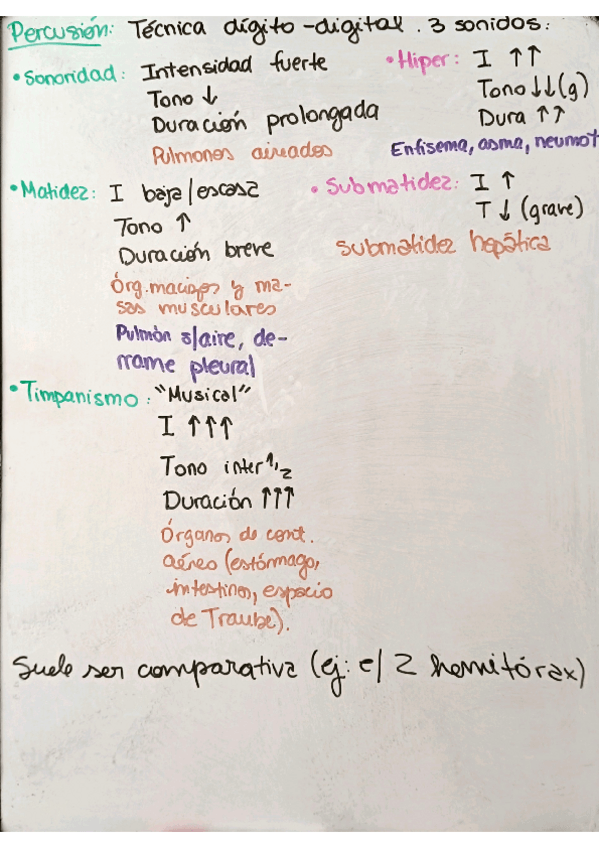 Percusión: Técnica dígito-digital. 3 sonidos:
• Sonoridad: Intensidad fuerte
Tono ↓
Duración prolongada
Pulmones aireados
• Hiper: I ↑↑
Tono ↓↓ (g)
Dura ↑↑
Enfisema, asma, neumot
• Matidez: I baja/escasa
Tono ↑
Duración breve
Órg. macizos y ma-
sas musculares
Pulmón s/aire, de-
rrame pleural
• Submatidez: I ↑
T ↓ (grave)
Submatidez hepática
• Timpanismo: "Musical"
I ↑↑↑
Tono inter 1,2
Duración ↑↑↑
Órganos de cont.
aéreo (estórmago,
intestinos, espacio
de Traube).
Suele ser comparativa (ej: e/ 2 hemitórax)